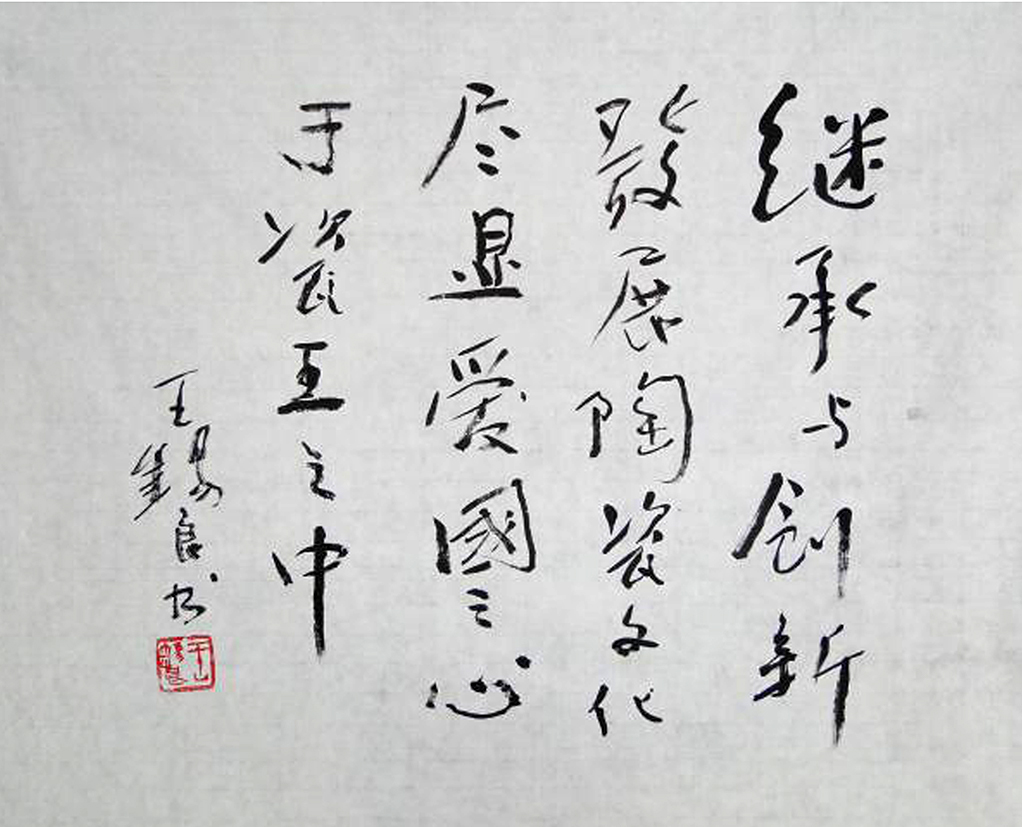 继承与创新
發展陶瓷文化
尽显爱國之心
于瓷王之中
王錫良书
王錫良